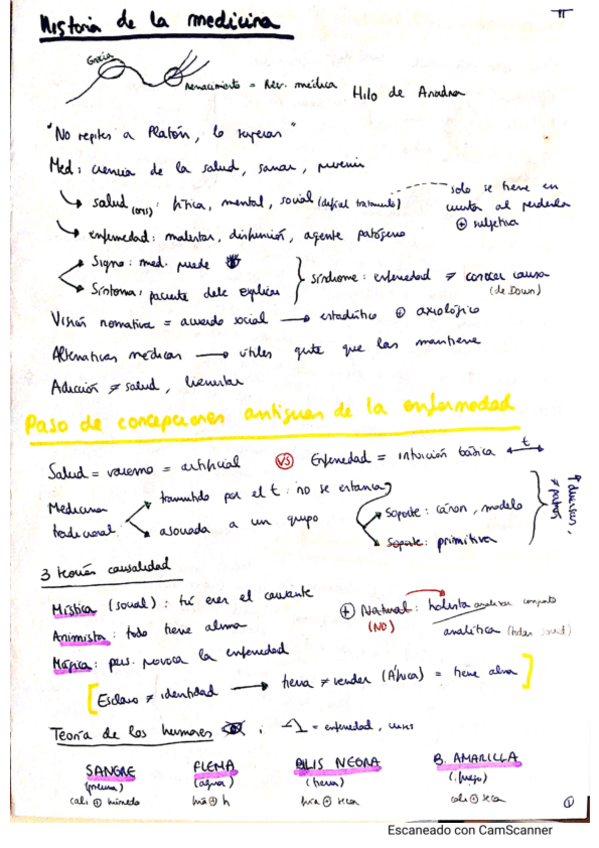 Historia de la medicina
Grecia
Renacimiento = Rev. médica
Hilo de Ariadna
"No repites a Platón, lo superas"
Med: ciencia de la salud, sanar, prevenir
salud (OMS): física, mental, social
solo se tiene en
cuenta al perderla
⊕ subjetiva
enfermedad: malestar, disfunción, agente patógeno
Signo: med. puede
Síntoma: paciente debe explicar
Síndrome: enfermedad ≠ conocer causa
(de Down)
Visión normativa = acuerdo social → estadístico ⊕ axiológico
Alternativas médicas → útiles gente que las mantiene
Adicción ≠ salud, bienestar
Paso de concepciones antiguas de la enfermedad
Salud = = artificial VS Enfermedad = intuición básica
t
Medicina
tradicional:
transmitido por el t: no se estanca
asociada a un grupo
Soporte: canon, modelo
Soporte: primitiva
↑ diversas,
≠
3 teorías causalidad
Mística (social): tú eres el causante
Animista: todo tiene alma
Mágica: pers. provoca la enfermedad
⊕ Natural: holista analizar conjunto
(NO)
analítica
[Esclavo ≠ identidad → tierra ≠ vender (África) = tiene alma]
Teoría de los humores : = enfermedad,
SANGRE
FLEMA
BILIS NEGRA
B. AMARILLA
(agua)
(tierra)
(fuego)
cali ⊕ húmedo
fría ⊕ h
fría ⊕ seca
cali ⊕ seca
①
Escaneado con CamScanner